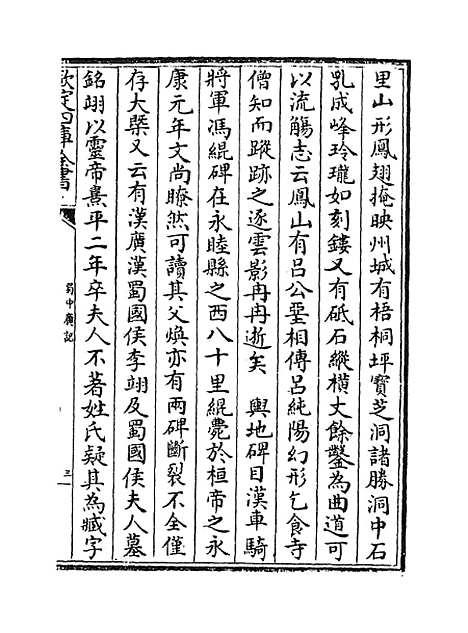 里山形鳳翅掩映州城有梧桐坪寶芝洞諸勝洞中石
乳成峰玲瓏如刻鏤又有砥石縱橫丈餘鑿為曲道可
以流觴志云鳳山有呂公堊相傳呂純陽幻形乞食寺
僧知而蹤跡之逐雲影冉冉逝矣　輿地碑目漢車騎
將軍馮緄碑在永睦縣之西八十里緄薨於桓帝之永
康元年文尚瞭然可讀其父煥亦有兩碑斷裂不全僅
存大槩又云有漢廣漢蜀國侯李翊及蜀國侯夫人墓
銘翊以靈帝熹平二年卒夫人不著姓氏疑其為臧字
欽定四庫全書
蜀中廣記
三